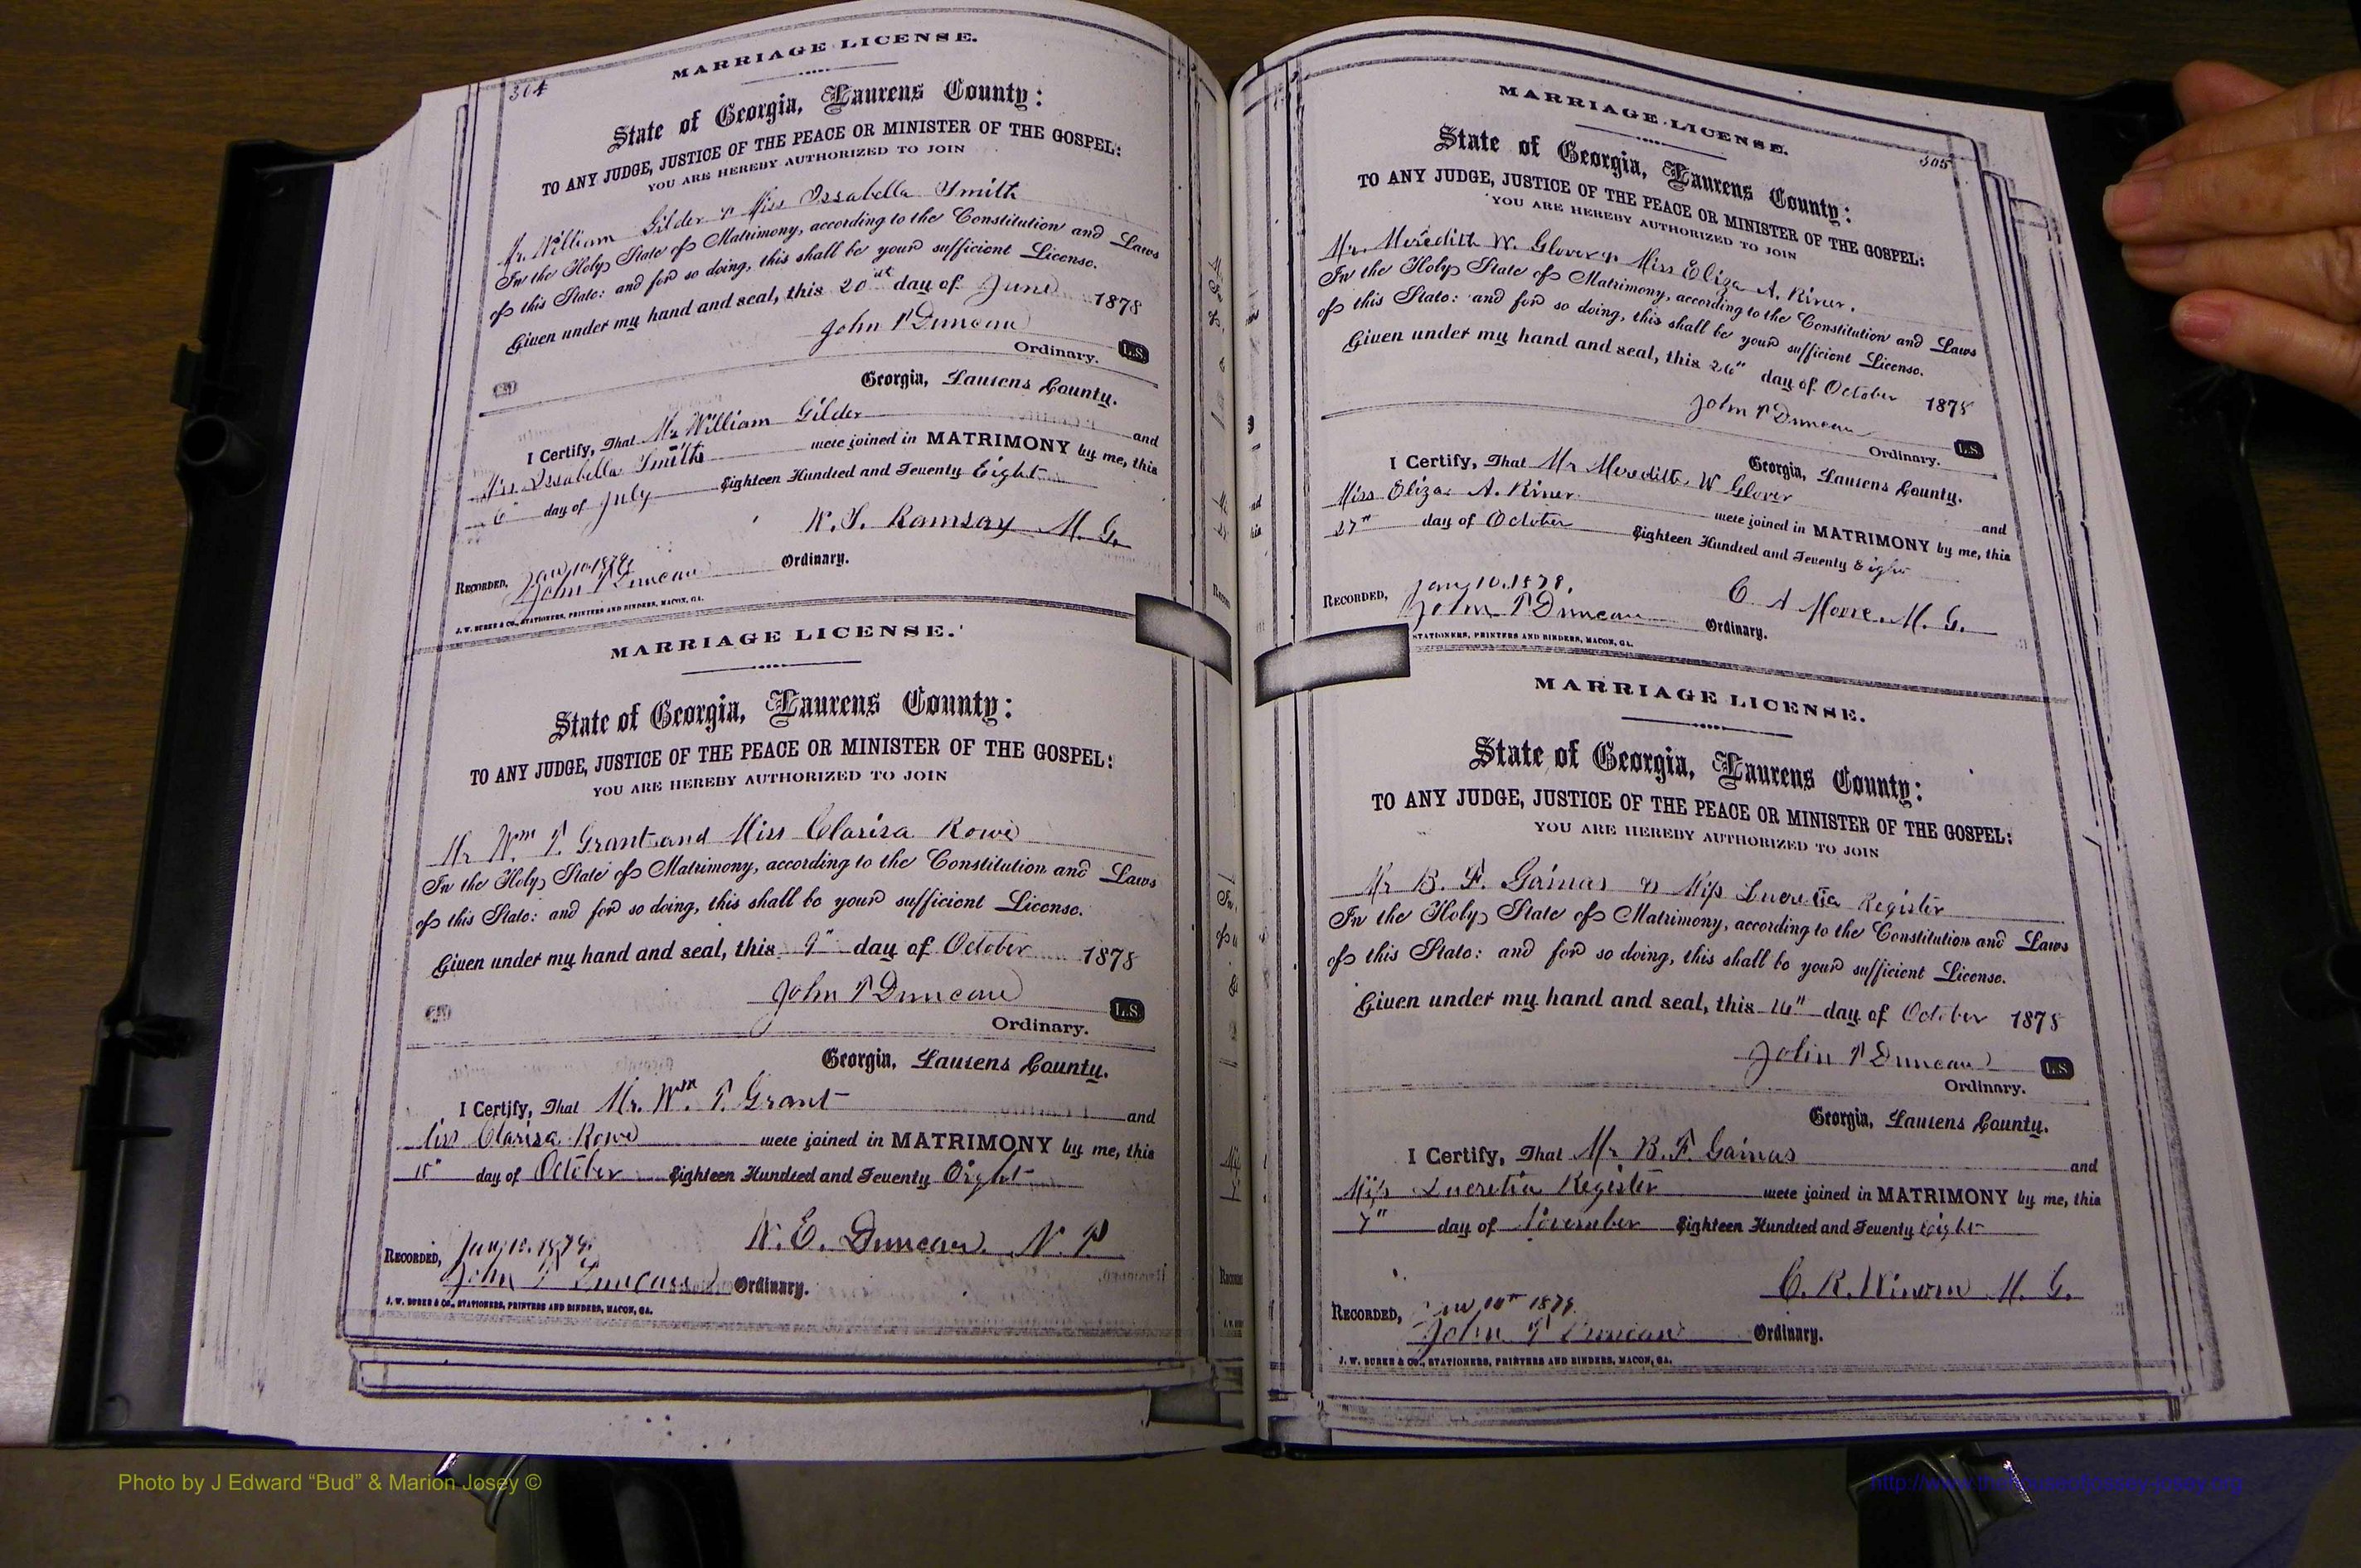 304
MARRIAGE LICENSE.
State of Georgia, Laurens County:
TO ANY JUDGE, JUSTICE OF THE PEACE OR MINISTER OF THE GOSPEL:
YOU ARE HEREBY AUTHORIZED TO JOIN
Mr. William Gilder & Miss Issabella Smith
In the Holy State of Matrimony, according to the Constitution and Laws
of this State: and for so doing, this shall be your sufficient License.
Given under my hand and seal, this 20 day of June 1878
John T Duncan
Ordinary. L.S.
Georgia, Laurens County.
I Certify, That Mr William Gilder and
Miss Issabella Smith were joined in MATRIMONY by me, this
6" day of July Eighteen Hundred and Seventy Eight
W. S. Ramsay M. G.
RECORDED, Jany 10 1879.
John T Duncan Ordinary.
J. W. BURKE & CO., STATIONERS, PRINTERS AND BINDERS, MACON, GA.
MARRIAGE LICENSE.
State of Georgia, Laurens County:
TO ANY JUDGE, JUSTICE OF THE PEACE OR MINISTER OF THE GOSPEL:
YOU ARE HEREBY AUTHORIZED TO JOIN
Mr Wm T. Grant and Miss Clarisa Rowe
In the Holy State of Matrimony, according to the Constitution and Laws
of this State: and for so doing, this shall be your sufficient License.
Given under my hand and seal, this 9" day of October 1878
John T Duncan
Ordinary. L.S.
Georgia, Laurens County.
I Certify, That Mr. Wm T. Grant and
Miss Clarisa Rowe were joined in MATRIMONY by me, this
day of October Eighteen Hundred and Seventy Eight
W. E. Duncan N. P
RECORDED, Jany 10. 1879.
John T Duncan Ordinary.
J. W. BURKE & CO., STATIONERS, PRINTERS AND BINDERS, MACON, GA.
305
MARRIAGE LICENSE.
State of Georgia, Laurens County:
TO ANY JUDGE, JUSTICE OF THE PEACE OR MINISTER OF THE GOSPEL:
YOU ARE HEREBY AUTHORIZED TO JOIN
Mr. Meredith W. Glover & Miss Eliza A. Riner.
In the Holy State of Matrimony, according to the Constitution and Laws
of this State: and for so doing, this shall be your sufficient License.
Given under my hand and seal, this 26" day of October 1878
John T Duncan
Ordinary. L.S.
Georgia, Laurens County.
I Certify, That Mr Meredith W Glover and
Miss Eliza A. Riner were joined in MATRIMONY by me, this
27" day of October Eighteen Hundred and Seventy Eight
C. A Moore. M. G.
RECORDED, Jany 10. 1879.
John T Duncan Ordinary.
STATIONERS, PRINTERS AND BINDERS, MACON, GA.
MARRIAGE LICENSE.
State of Georgia, Laurens County:
TO ANY JUDGE, JUSTICE OF THE PEACE OR MINISTER OF THE GOSPEL:
YOU ARE HEREBY AUTHORIZED TO JOIN
Mr B. F. Gainas & Miss Lucretia Register
In the Holy State of Matrimony, according to the Constitution and Laws
of this State: and for so doing, this shall be your sufficient License.
Given under my hand and seal, this 16" day of October 1878
John T Duncan
Ordinary. L.S.
Georgia, Laurens County.
I Certify, That Mr B. F. Gainas and
Miss Lucretia Register were joined in MATRIMONY by me, this
7" day of November Eighteen Hundred and Seventy Eight
C. R. M. G.
RECORDED, 1879.
John T Duncan Ordinary.
J. W. BURKE & CO., STATIONERS, PRINTERS AND BINDERS, MACON, GA.
Photo by J Edward “Bud” & Marion Josey ©